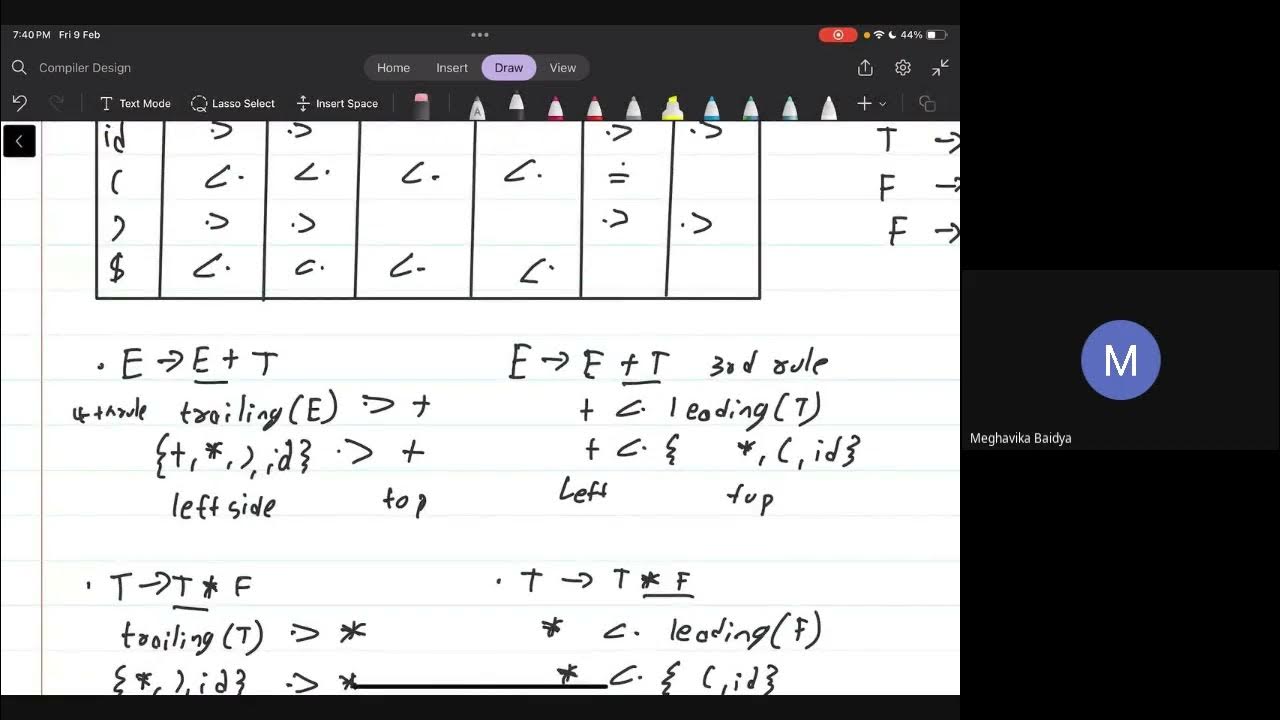 7:40 PM Fri 9 Feb ••• 44%
Compiler Design Home Insert Draw View
Text Mode Lasso Select Insert Space
id ·> ·> ·> ·> T →
( <· <· <· <· ≐ F →
) ·> ·> ·> ·> F →
$ <· <· <· <·
· E → E + T E → E + T 3rd rule
4th rule trailing(E) ·> + + <· leading(T)
{+, *, ), id} ·> + + <· { *, (, id}
left side top Left top
· T → T * F · T → T * F
trailing(T) ·> * * <· leading(F)
{*, ), id} ·> * * <· { (, id}
M
Meghavika Baidya